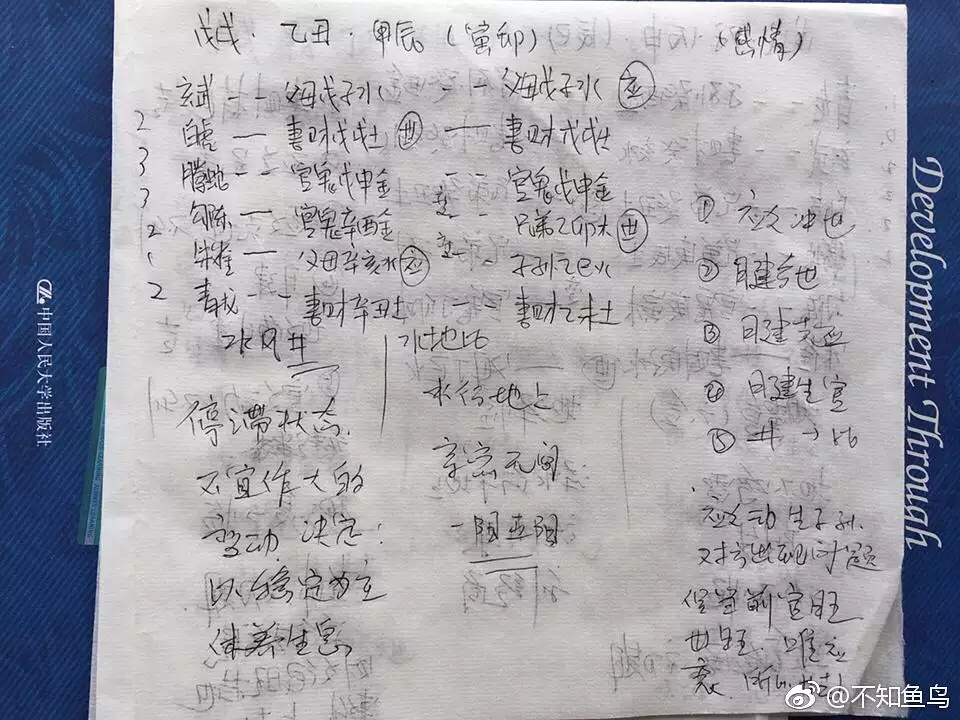 戊戌·乙丑·甲辰(寅卯) (感情)
玄武 -- 父母戊子水 -- 父母戊子水 应
2 白虎 — 妻财戊戌土 世 — 妻财戊戌土
3 腾蛇 -- 官鬼戊申金 -- 官鬼戊申金
3 勾陈 — 官鬼辛酉金 -- 兄弟乙卯木 世
2 朱雀 — 父母辛亥水 应 -- 子孙乙巳火
2 青龙 -- 妻财辛丑土 妻财乙未土
水风井
水地比
停滞状态
不宜作大的
变动 决定:
以稳定为主
休养生息
水行地上
亲密无间
① 应冲世
② 日建合世
③ 日建克应
④ 日建生官
⑤ 井→比
应动生子孙.
对方出现问题
官旺
世旺. 唯应
衰.
Development Through
中国人民大学出版社
@不知鱼鸟